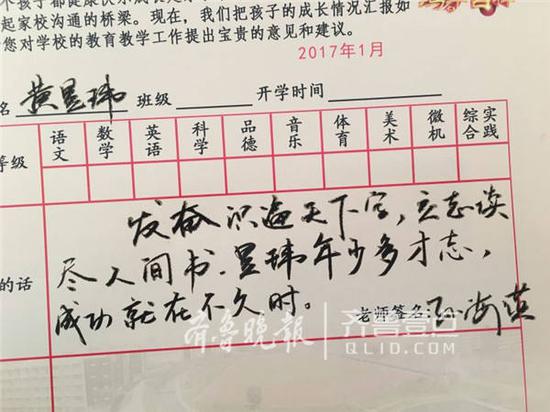 个孩子都健康快乐成长是
起家校沟通的桥梁。现在，我们把孩子的成长情况汇报如
您对学校的教育教学工作提出宝贵的意见和建议。
2017年1月
名 黄昱玮 班级 开学时间
等级 语文 数学 英语 科学 品德 音乐 体育 美术 微机 综合实践
发奋识遍天下字，立志读
的话 尽人间书。昱玮年少多才志，
成功就在不久时。
老师签名: 孙海英
齐鲁晚报 齐鲁壹点
QLID.COM